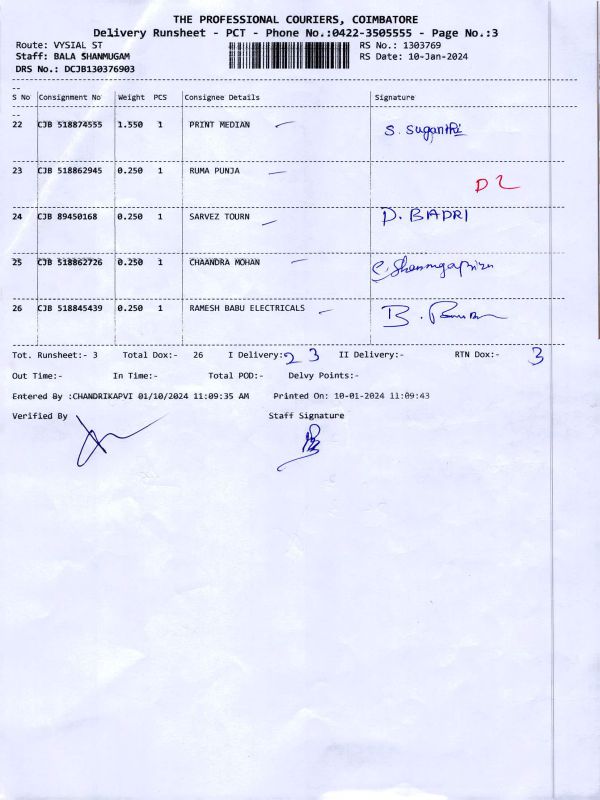 THE PROFESSIONAL COURIERS, COIMBATORE
Delivery Runsheet - PCT - Phone No.:0422-3505555 - Page No.:3
Route: VYSIAL ST RS No.: 1303769
Staff: BALA SHANMUGAM RS Date: 10-Jan-2024
DRS No.: DCJB130376903
S No Consignment No Weight PCS Consignee Details Signature
22 CJB 518874555 1.550 1 PRINT MEDIAN S. Suganthi
23 CJB 518862945 0.250 1 RUMA PUNJA D2
24 CJB 89450168 0.250 1 SARVEZ TOURN D. BADRI
25 CJB 518862726 0.250 1 CHAANDRA MOHAN
26 CJB 518845439 0.250 1 RAMESH BABU ELECTRICALS B.
Tot. Runsheet:- 3 Total Dox:- 26 I Delivery:- 23 II Delivery:- RTN Dox:- 3
Out Time:- In Time:- Total POD:- Delvy Points:-
Entered By :CHANDRIKAPVI 01/10/2024 11:09:35 AM Printed On: 10-01-2024 11:09:43
Verified By Staff Signature